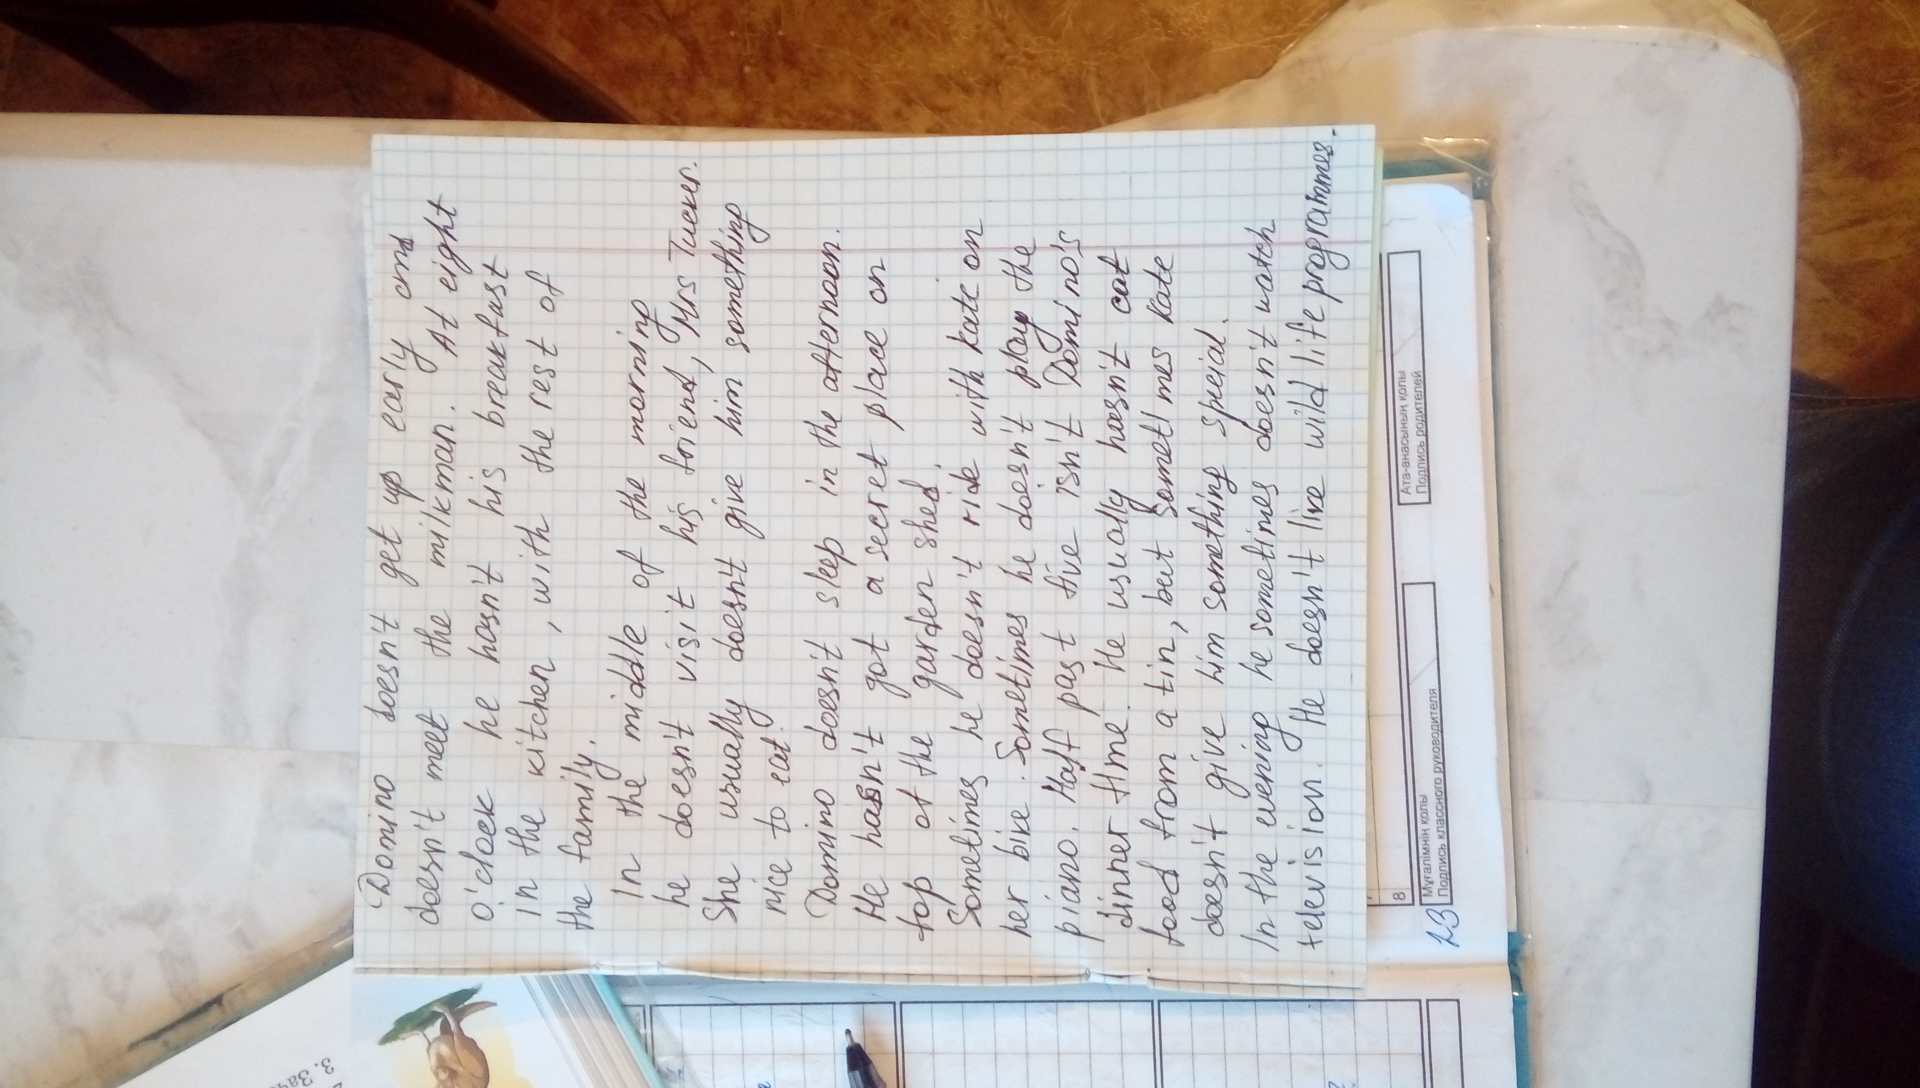 Domino doesn't get up early and
doesn't meet the milkman. At eight
o'clock he hasn't his breakfast
in the kitchen, with the rest of
the family.
In the middle of the morning
he doesn't visit his friend, Mrs Tucker.
She usually doesn't give him something
nice to eat.
Domino doesn't sleep in the afternoon.
He hasn't got a secret place on
top of the garden shed.
Sometimes he doesn't ride with kate on
her bike. Sometimes he doesn't play the
piano. Half past five isn't Domino's
dinner time. He usually hasn't cat
food from a tin, but sometimes kate
doesn't give him something special.
In the evening he sometimes doesn't watch
television. He doesn't like wild life programmes.
8
Мұғалімнің қолы
Подпись классного руководителя
23
Ата-анасының қолы
Подпись родителей
3. Зач